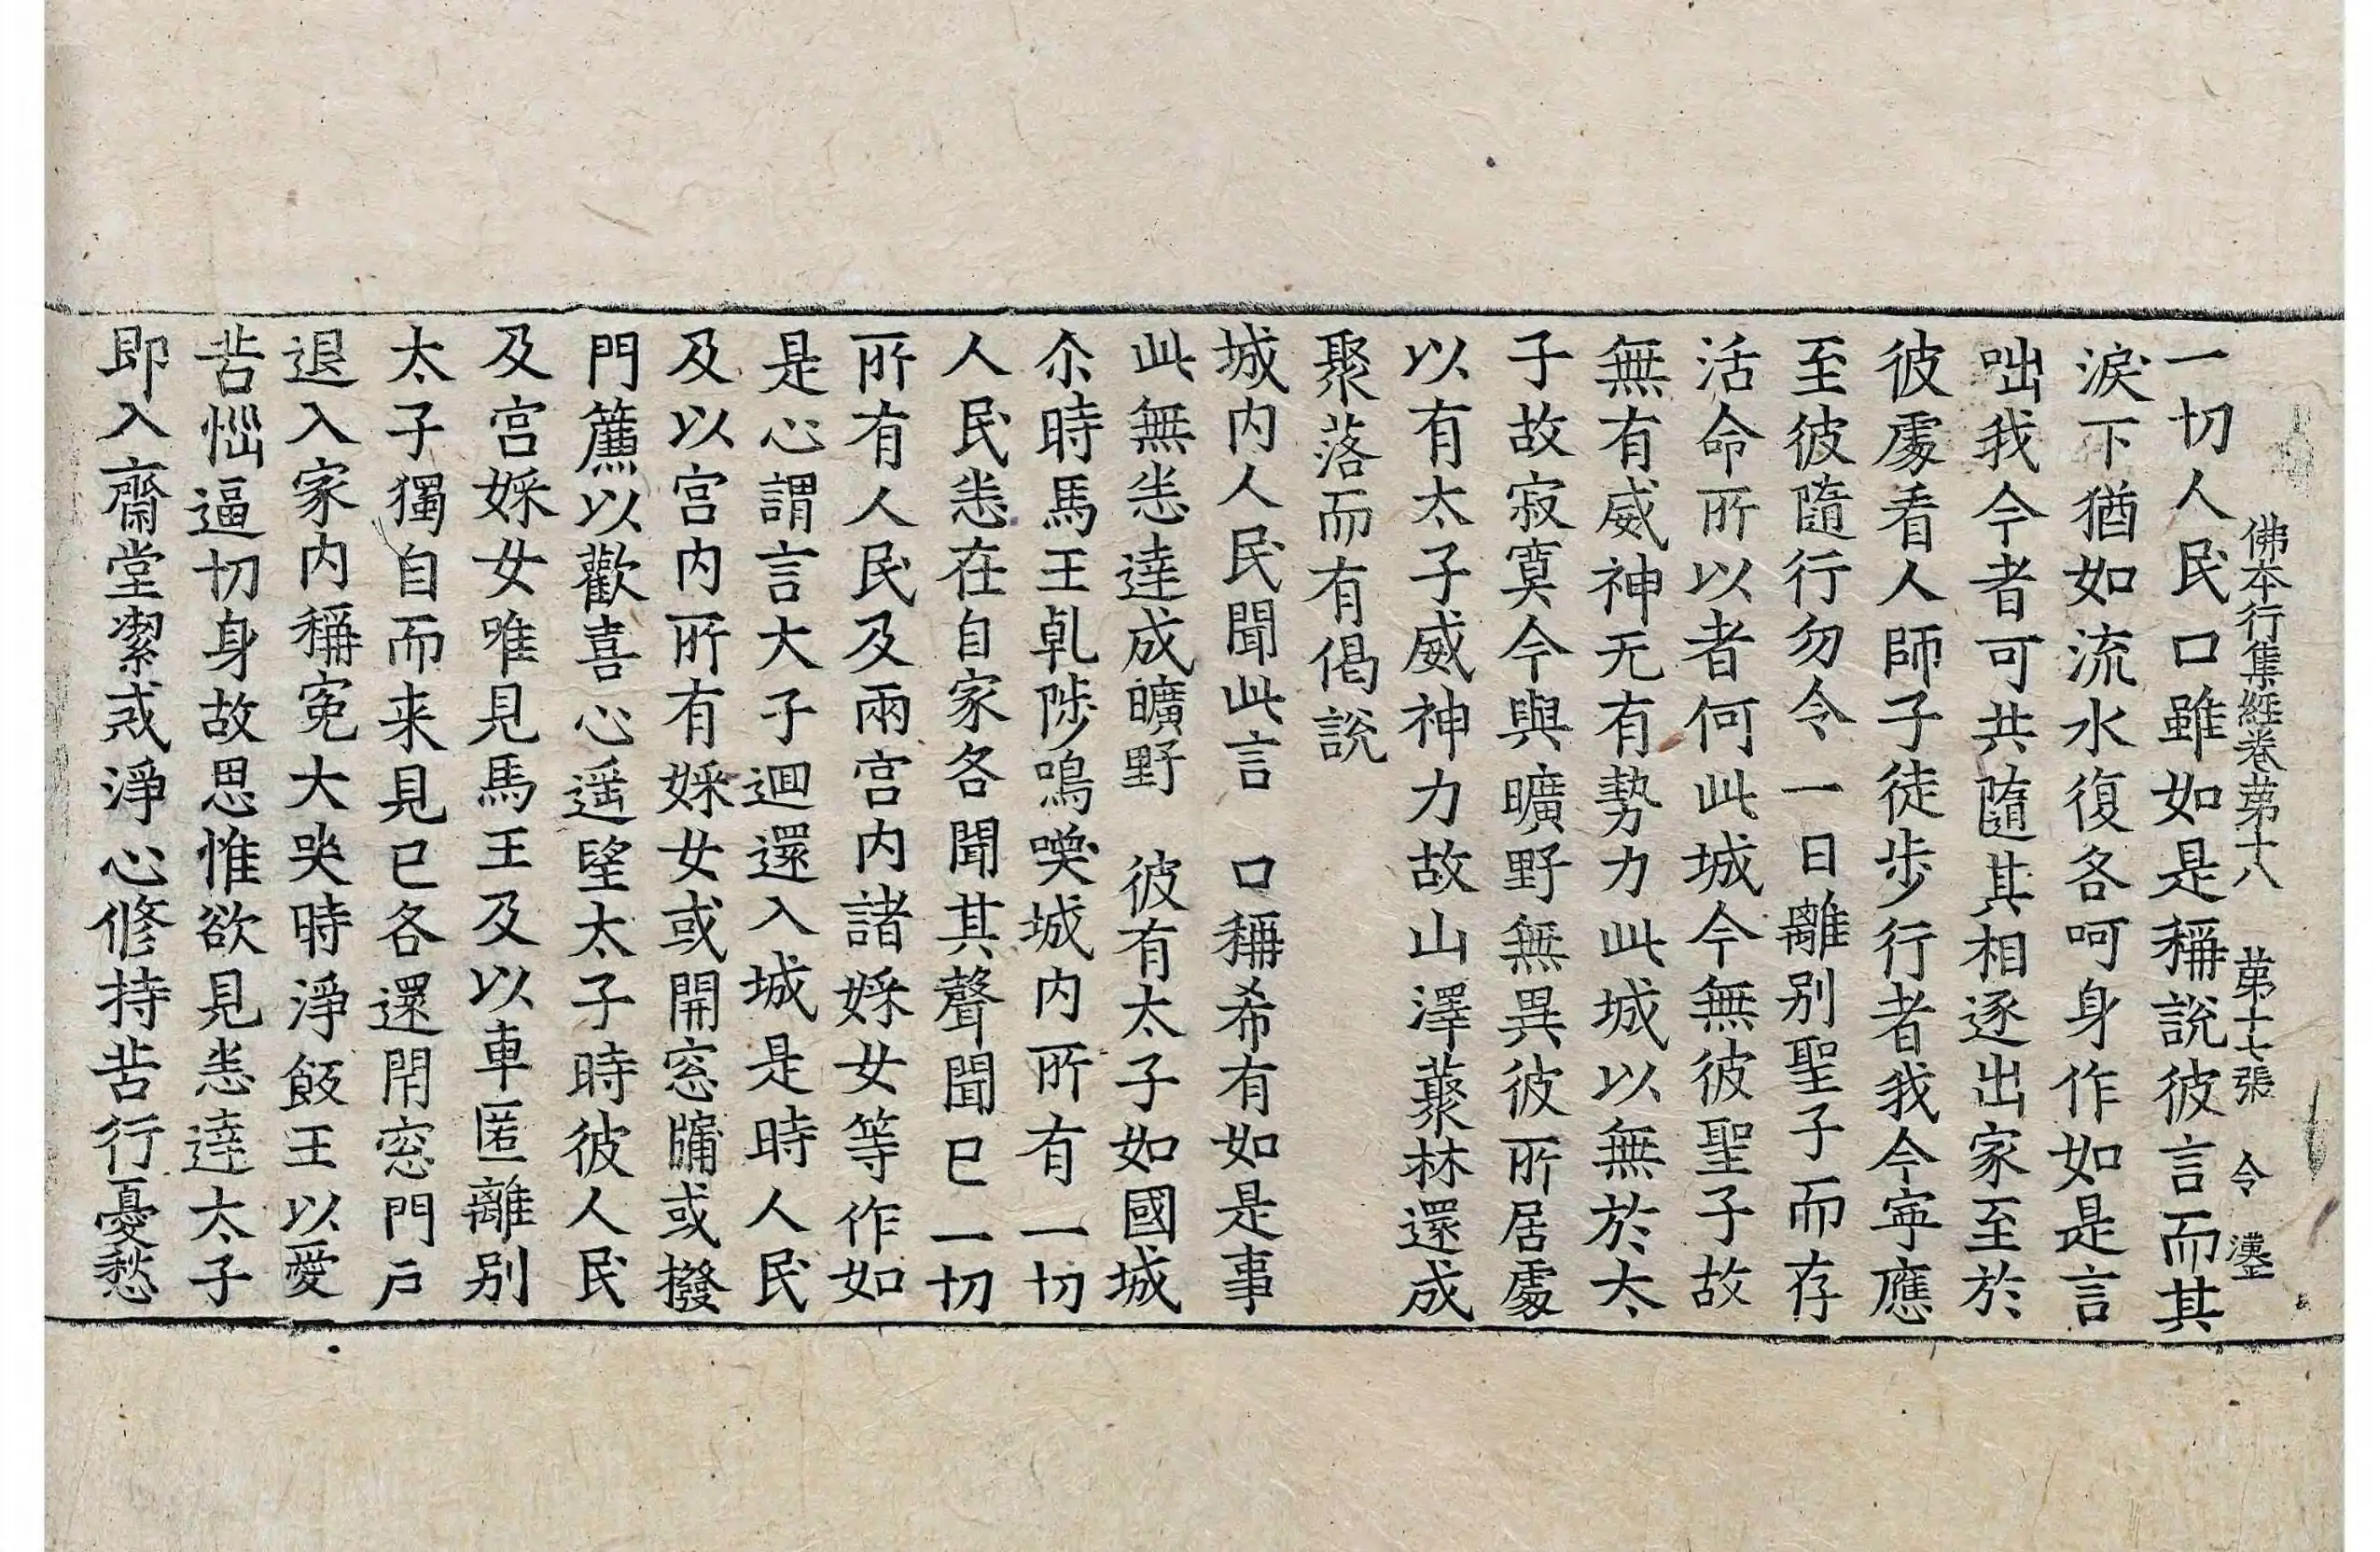 佛本行集經卷苐十八　苐十七張　令
一切人民口雖如是稱說彼言而其
淚下猶如流水復各呵身作如是言
咄我今者可共隨其相逐出家至於
彼處看人師子徒步行者我今寧應
至彼隨行勿令一日離別聖子而存
活命所以者何此城今無彼聖子故
無有威神无有勢力此城以無於太
子故寂寞今與曠野無異彼所居處
以有太子威神力故山澤藂林還成
聚落而有偈說
城内人民聞此言　口稱希有如是事
此無悉達成曠野　彼有太子如國城
尒時馬王乹陟鳴喚城内所有一切
人民悉在自家各聞其聲聞已一切
所有人民及兩宮内諸婇女等作如
是心謂言大子迴還入城是時人民
及以宮内所有婇女或開窓牖或撥
門簾以歡喜心遥望太子時彼人民
及宮婇女唯見馬王及以車匿離別
太子獨自而来見已各還閇窓門戶
退入家内稱寃大哭時淨飯王以愛
苦惱逼切身故思惟欲見悉達太子
即入齋堂潔戒淨心修持苦行憂愁